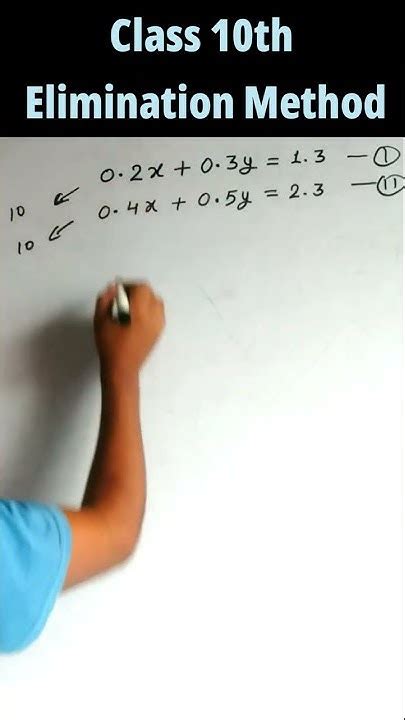 Class 10th
Elimination Method
0.2x + 0.3y = 1.3 — (1)
10 ↙ 0.4x + 0.5y = 2.3 — (11)
10 ↙